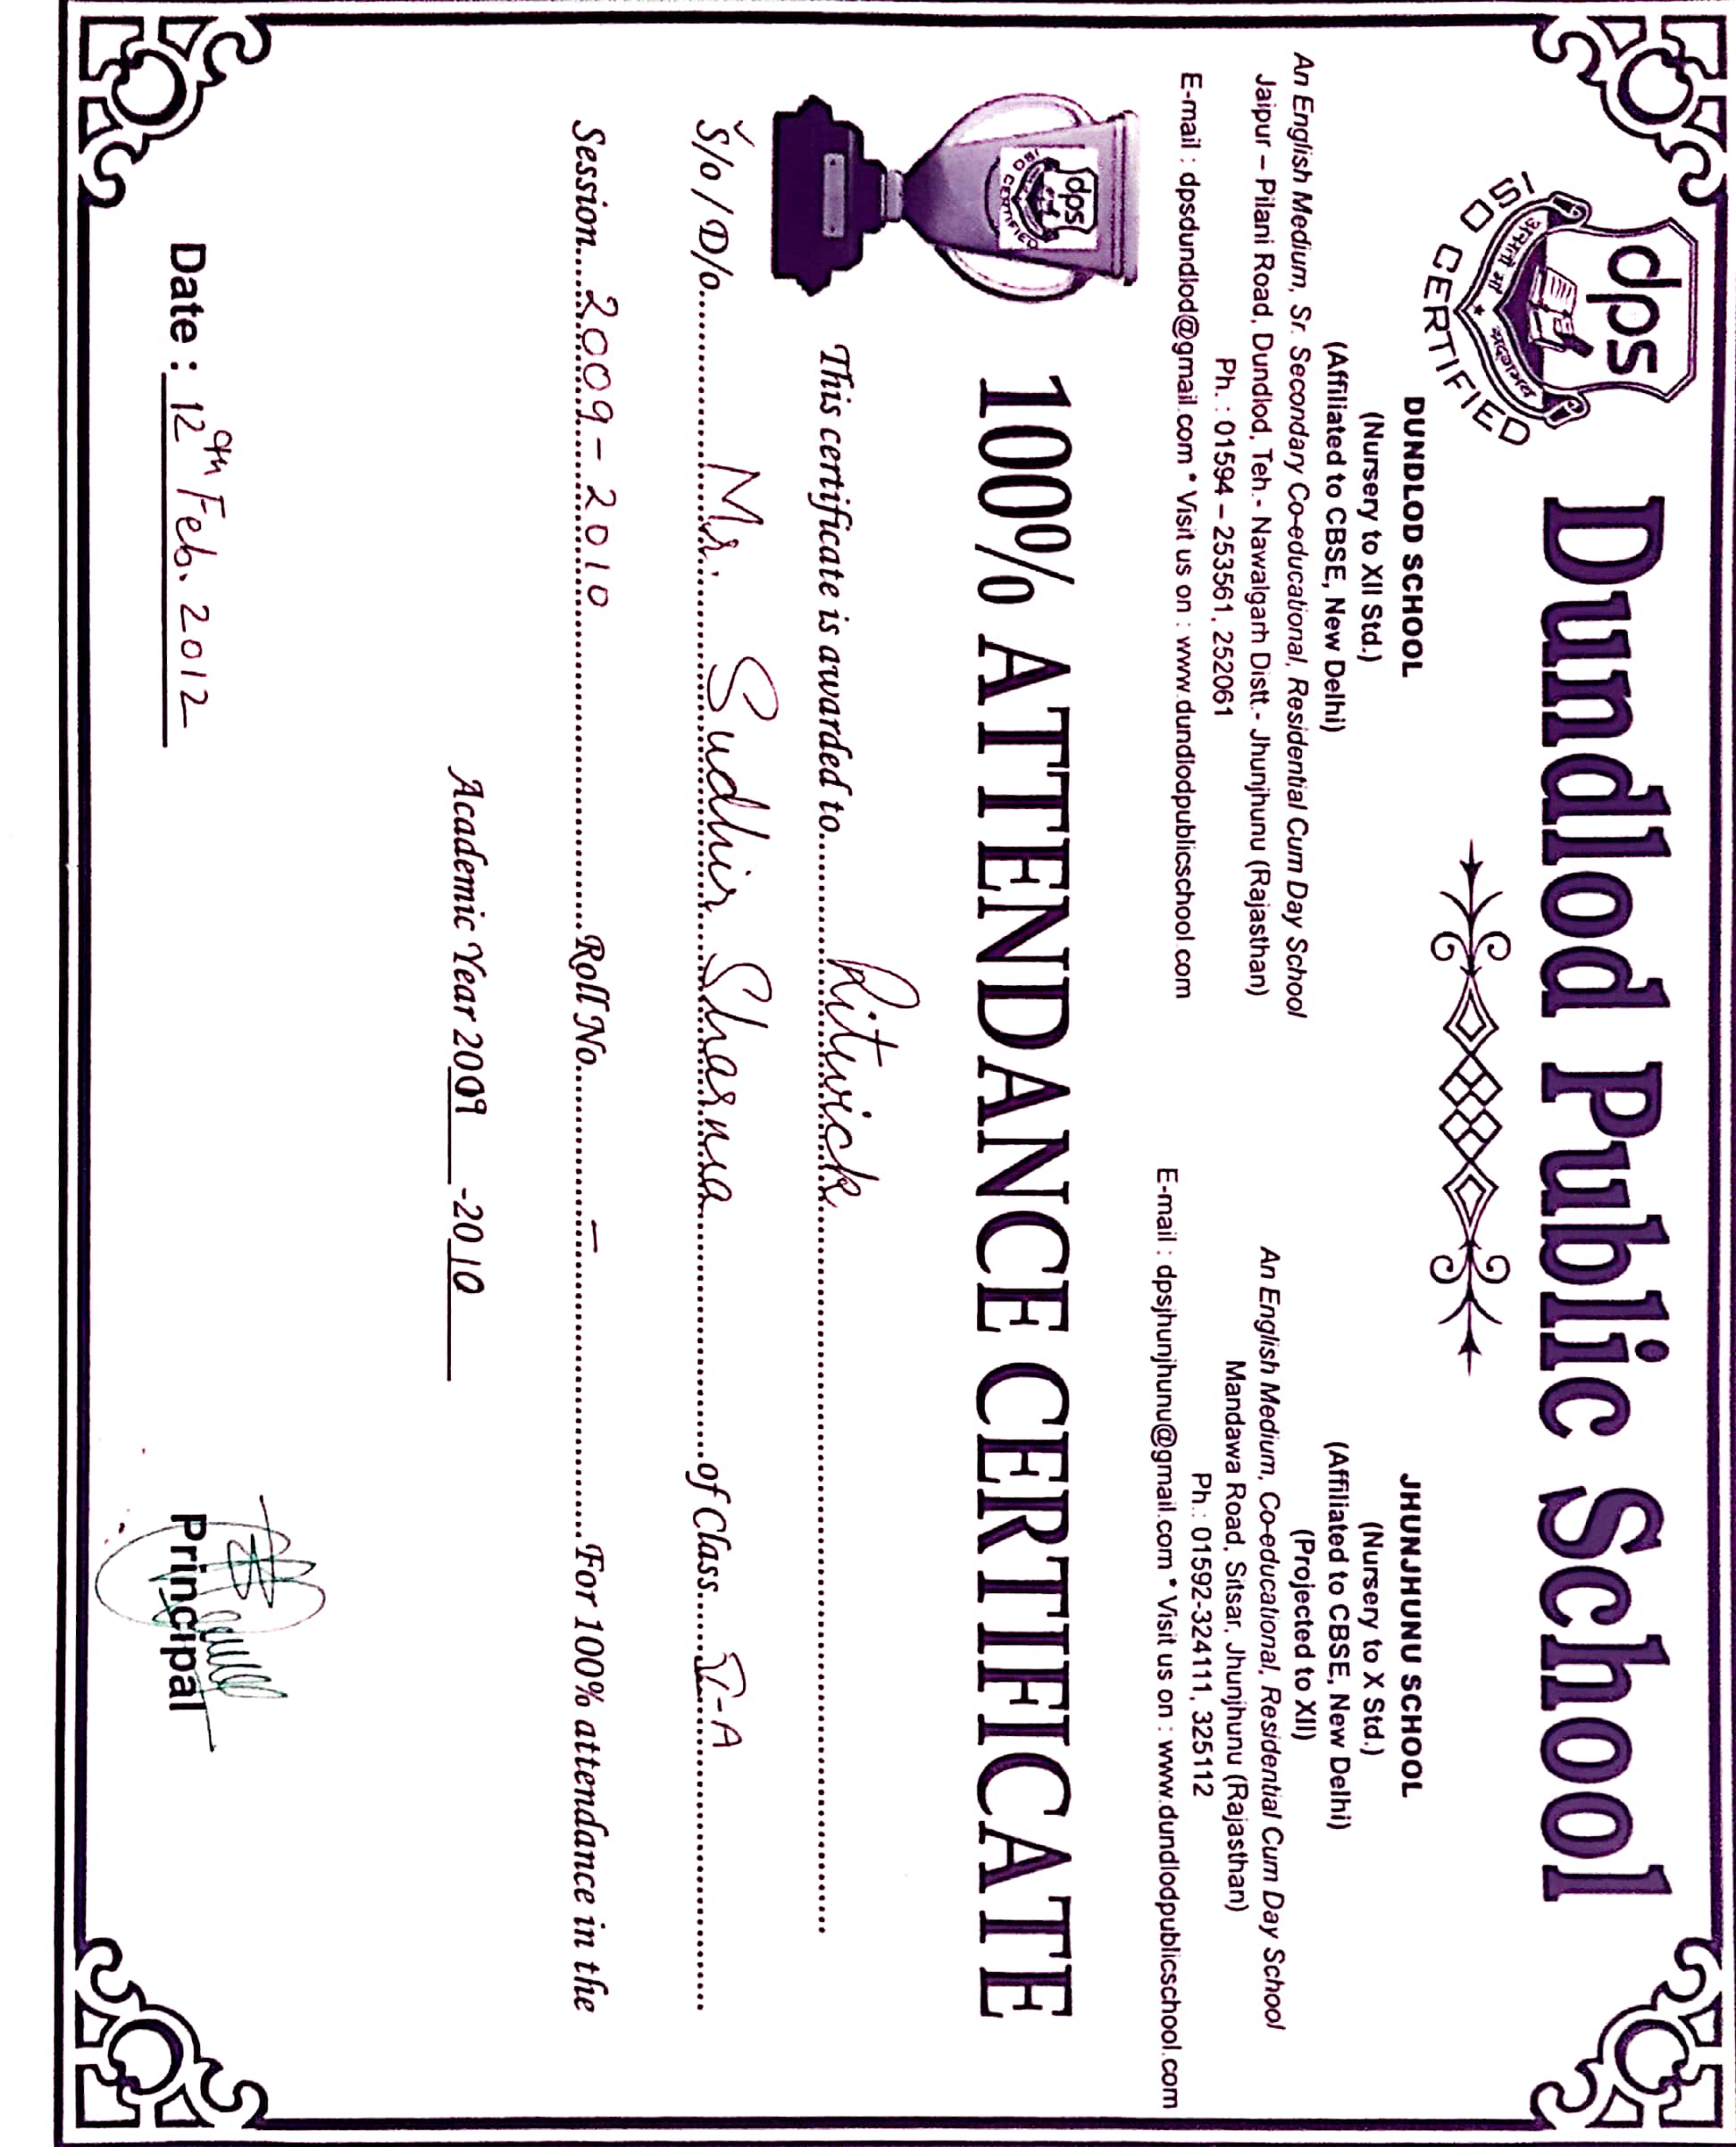 Dundlod Public School
dps
ISO CERTIFIED
DUNDLOD SCHOOL
(Nursery to XII Std.)
(Affiliated to CBSE, New Delhi)
An English Medium, Sr. Secondary Co-educational, Residential Cum Day School
Jaipur – Pilani Road, Dundlod, Teh.- Nawalgarh Distt.- Jhunjhunu (Rajasthan)
Ph. : 01594 – 253561, 252061
E-mail : dpsdundlod@gmail.com * Visit us on : www.dundlodpublicschool.com
JHUNJHUNU SCHOOL
(Nursery to X Std.)
(Affiliated to CBSE, New Delhi)
(Projected to XII)
An English Medium, Co-educational, Residential Cum Day School
Mandawa Road, Sitsar, Jhunjhunu (Rajasthan)
Ph.: 01592-324111, 325112
E-mail : dpsjhunjhunu@gmail.com * Visit us on : www.dundlodpublicschool.com
dps
ISO CERTIFIED
100% ATTENDANCE CERTIFICATE
This certificate is awarded to Ritwick
S/o / D/o Mr. Sudhir Sharma of Class V-A
Session 2009-2010 Roll No. – For 100% attendance in the
Academic Year 2009 -2010
Date : 12th Feb. 2012
Principal